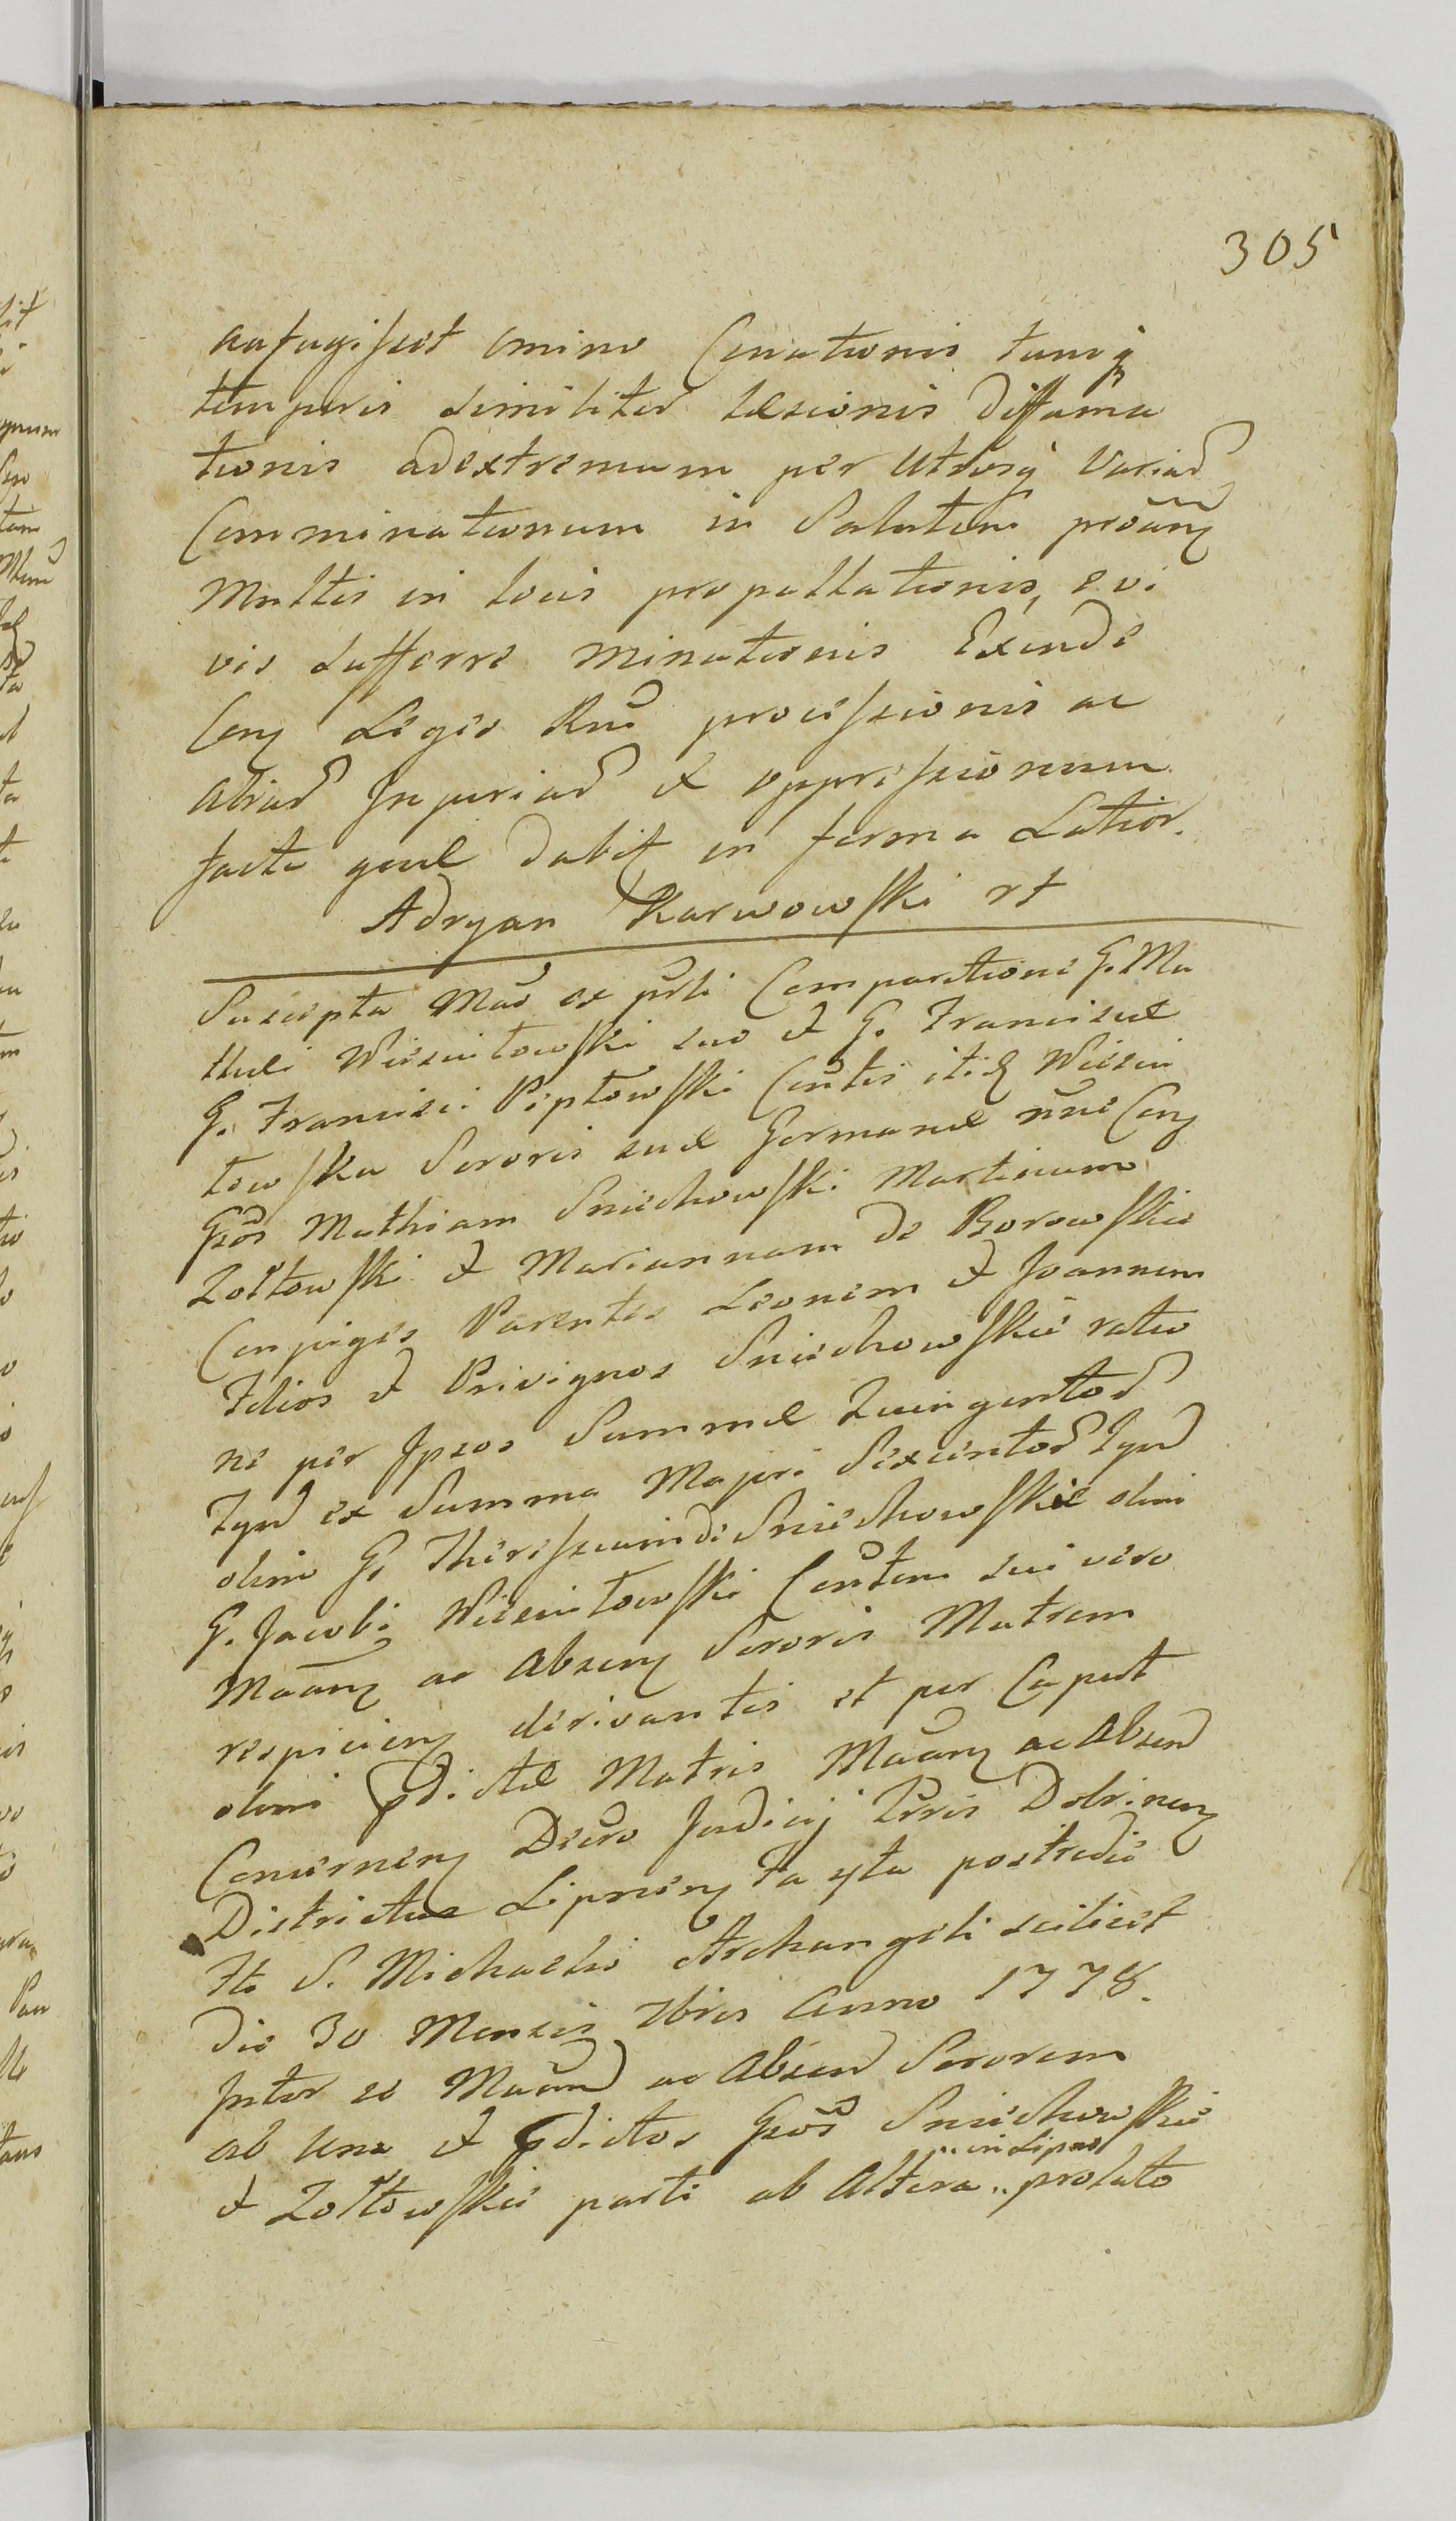 305
aufugisset omino Conationis tumq
temporis similiter læsionis diffama
tionis adextremum per Utrosq Variar
Comminationum in Salutem
Multis in locis propallationis, e vi
vis sufferre minationis Exinde
Conq Leges Rni processionis ac
aliar Injuriar & oppressionum
facta dabit in forma Latior.
Adryan Karwowski rt
Suscepta Mao ex Comparitione G. Ma
thei Wiesiułowski suo & G. Franciscæ
G. Francisci Pepłowski Contis itid Wiesiu
łowska Sororis suæ Germanæ nunc Conq
Gsos Mathiam Sniechowski Martinum
Zołtowski & Mariannam de Borowskie
Conjuges Parentes Leonem & Joannem
Filios & Privignos Sniechowskie ratio
ne per Ipsos Summæ Quingentor
Tynf ex Summa Majori Sexcentor Tynf
olim G. Theressiam de Sniechowskie olim
G. Jacobi Wiesiułowski Contem sui vero
Maanq ac Absenq Sororis Matrem
respicienq derivantis et per Caput
olim pdictæ Matris Maanq ac Absen
Concernenq Decro Judicij Trris Dobrinenq
Districtus Lipnenq Fa 4ta postridie
Fti S. Michaelis Archangeli scilicet
die 30 Mensis 7bris Anno 1778.
Inter se Maan ac Absen Sororem
ab Una & pdictos Gsos Sniechowskie
in Lipno
& Zołtowskie parte ab Altera .. prolato